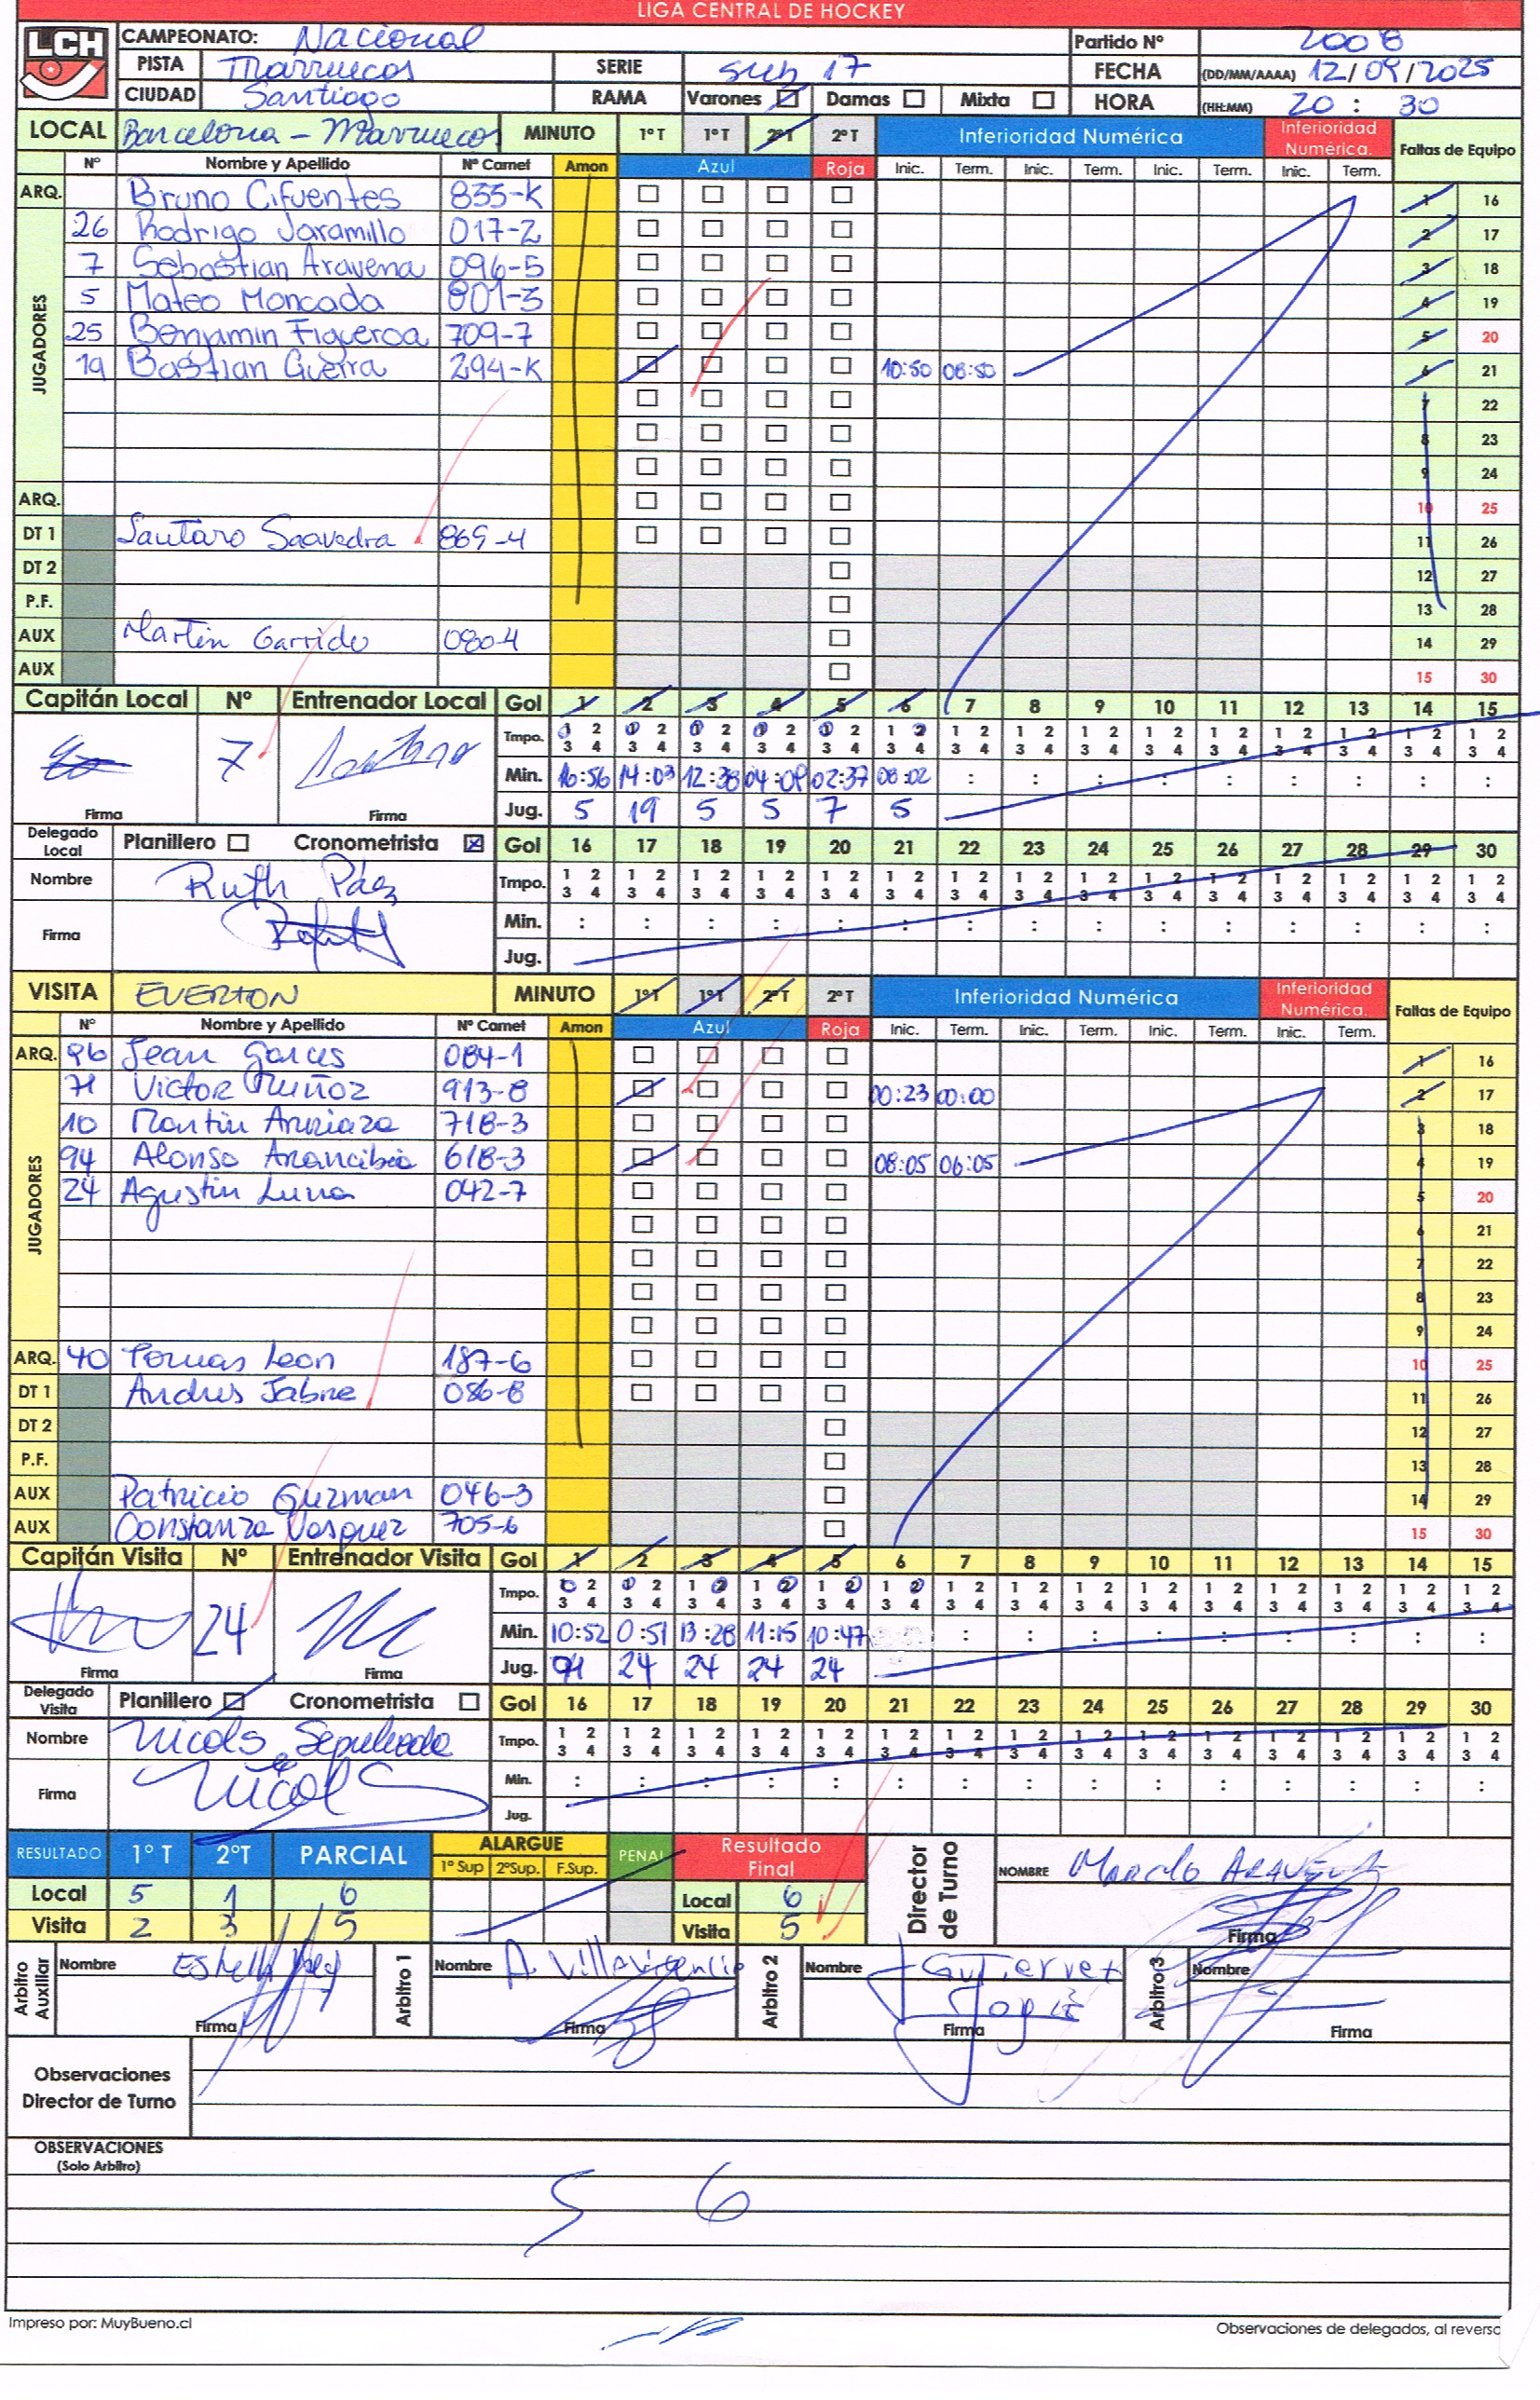 LIGA CENTRAL DE HOCKEY
LCH
CAMPEONATO: Nacional Partido Nº 2008
PISTA Marruecos SERIE sub 17 FECHA (DD/MM/AAAA) 12/09/2025
CIUDAD Santiago RAMA Varones Damas Mixta HORA (HH:MM) 20 : 30
LOCAL Barcelona - Marruecos MINUTO 1º T 1º T 2º T 2º T Inferioridad Numérica Inferioridad Numérica. Faltas de Equipo
Nº Nombre y Apellido Nº Carnet Amon Azul Roja Inic. Term. Inic. Term. Inic. Term. Inic. Term.
ARQ. Bruno Cifuentes 833-K 1 16
JUGADORES
26 Rodrigo Jaramillo 017-2 2 17
7 Sebastian Aravena 096-5 3 18
5 Mateo Moncada 801-3 4 19
25 Benjamin Figueroa 709-7 5 20
19 Bastian Guerra 294-K 10:50 08:50 6 21
7 22
8 23
9 24
ARQ. 10 25
DT 1 Lautaro Saavedra 869-4 11 26
DT 2 12 27
P.F. 13 28
AUX Martin Garrido 080-4 14 29
AUX 15 30
Capitán Local Nº Entrenador Local Gol 1 2 3 4 5 6 7 8 9 10 11 12 13 14 15
Tmpo. 1 2 1 2 1 2 1 2 1 2 1 2 1 2 1 2 1 2 1 2 1 2 1 2 1 2 1 2 1 2
3 4 3 4 3 4 3 4 3 4 3 4 3 4 3 4 3 4 3 4 3 4 3 4 3 4 3 4 3 4
7 Min. 16:56 14:03 12:38 04:09 02:37 08:02 : : : : : : : : :
Firma Firma Jug. 5 19 5 5 7 5
Delegado Local Planillero Cronometrista Gol 16 17 18 19 20 21 22 23 24 25 26 27 28 29 30
Nombre Ruth Páez Tmpo. 1 2 1 2 1 2 1 2 1 2 1 2 1 2 1 2 1 2 1 2 1 2 1 2 1 2 1 2 1 2
3 4 3 4 3 4 3 4 3 4 3 4 3 4 3 4 3 4 3 4 3 4 3 4 3 4 3 4 3 4
Firma Min. : : : : : : : : : : : : : : :
Jug.
VISITA EVERTON MINUTO 1º T 1º T 2º T 2º T Inferioridad Numérica Inferioridad Numérica. Faltas de Equipo
Nº Nombre y Apellido Nº Carnet Amon Azul Roja Inic. Term. Inic. Term. Inic. Term. Inic. Term.
ARQ. 96 Jean Garces 084-1 1 16
JUGADORES
71 Victor Muñoz 913-8 00:23 00:00 2 17
10 Martin Arriaza 718-3 3 18
94 Alonso Arancibia 618-3 08:05 06:05 4 19
24 Agustin Luna 042-7 5 20
6 21
7 22
8 23
9 24
ARQ. 40 Tomas Leon 187-6 10 25
DT 1 Andres Jabre 086-8 11 26
DT 2 12 27
P.F. 13 28
AUX Patricio Guzman 046-3 14 29
AUX Constanza Vasquez 705-6 15 30
Capitán Visita Nº Entrenador Visita Gol 1 2 3 4 5 6 7 8 9 10 11 12 13 14 15
Tmpo. 1 2 1 2 1 2 1 2 1 2 1 2 1 2 1 2 1 2 1 2 1 2 1 2 1 2 1 2 1 2
3 4 3 4 3 4 3 4 3 4 3 4 3 4 3 4 3 4 3 4 3 4 3 4 3 4 3 4 3 4
24 Min. 10:52 0:51 13:28 11:15 10:47 : : : : : : : : :
Firma Firma Jug. 24 24 24 24
Delegado Visita Planillero Cronometrista Gol 16 17 18 19 20 21 22 23 24 25 26 27 28 29 30
Nombre Nicols Sepulveda Tmpo. 1 2 1 2 1 2 1 2 1 2 1 2 1 2 1 2 1 2 1 2 1 2 1 2 1 2 1 2 1 2
3 4 3 4 3 4 3 4 3 4 3 4 3 4 3 4 3 4 3 4 3 4 3 4 3 4 3 4 3 4
Firma Nicol S Min. : : : : : : : : : : : : : : :
Jug.
RESULTADO 1º T 2ºT PARCIAL ALARGUE 1º Sup 2ºSup. F.Sup. PENAL Resultado Final Director de Turno NOMBRE Marcelo Aravena
Local 5 1 6 Local 6
Visita 2 3 5 Visita 5 Firma
Arbitro Auxiliar Nombre Arbitro 1 Nombre A. Villavicencio Arbitro 2 Nombre J Gutierrez Arbitro 3 Nombre
Firma Firma Firma Firma
Observaciones
Director de Turno
OBSERVACIONES
(Solo Arbitro)
5 6
Impreso por: MuyBueno.cl Observaciones de delegados, al reverso